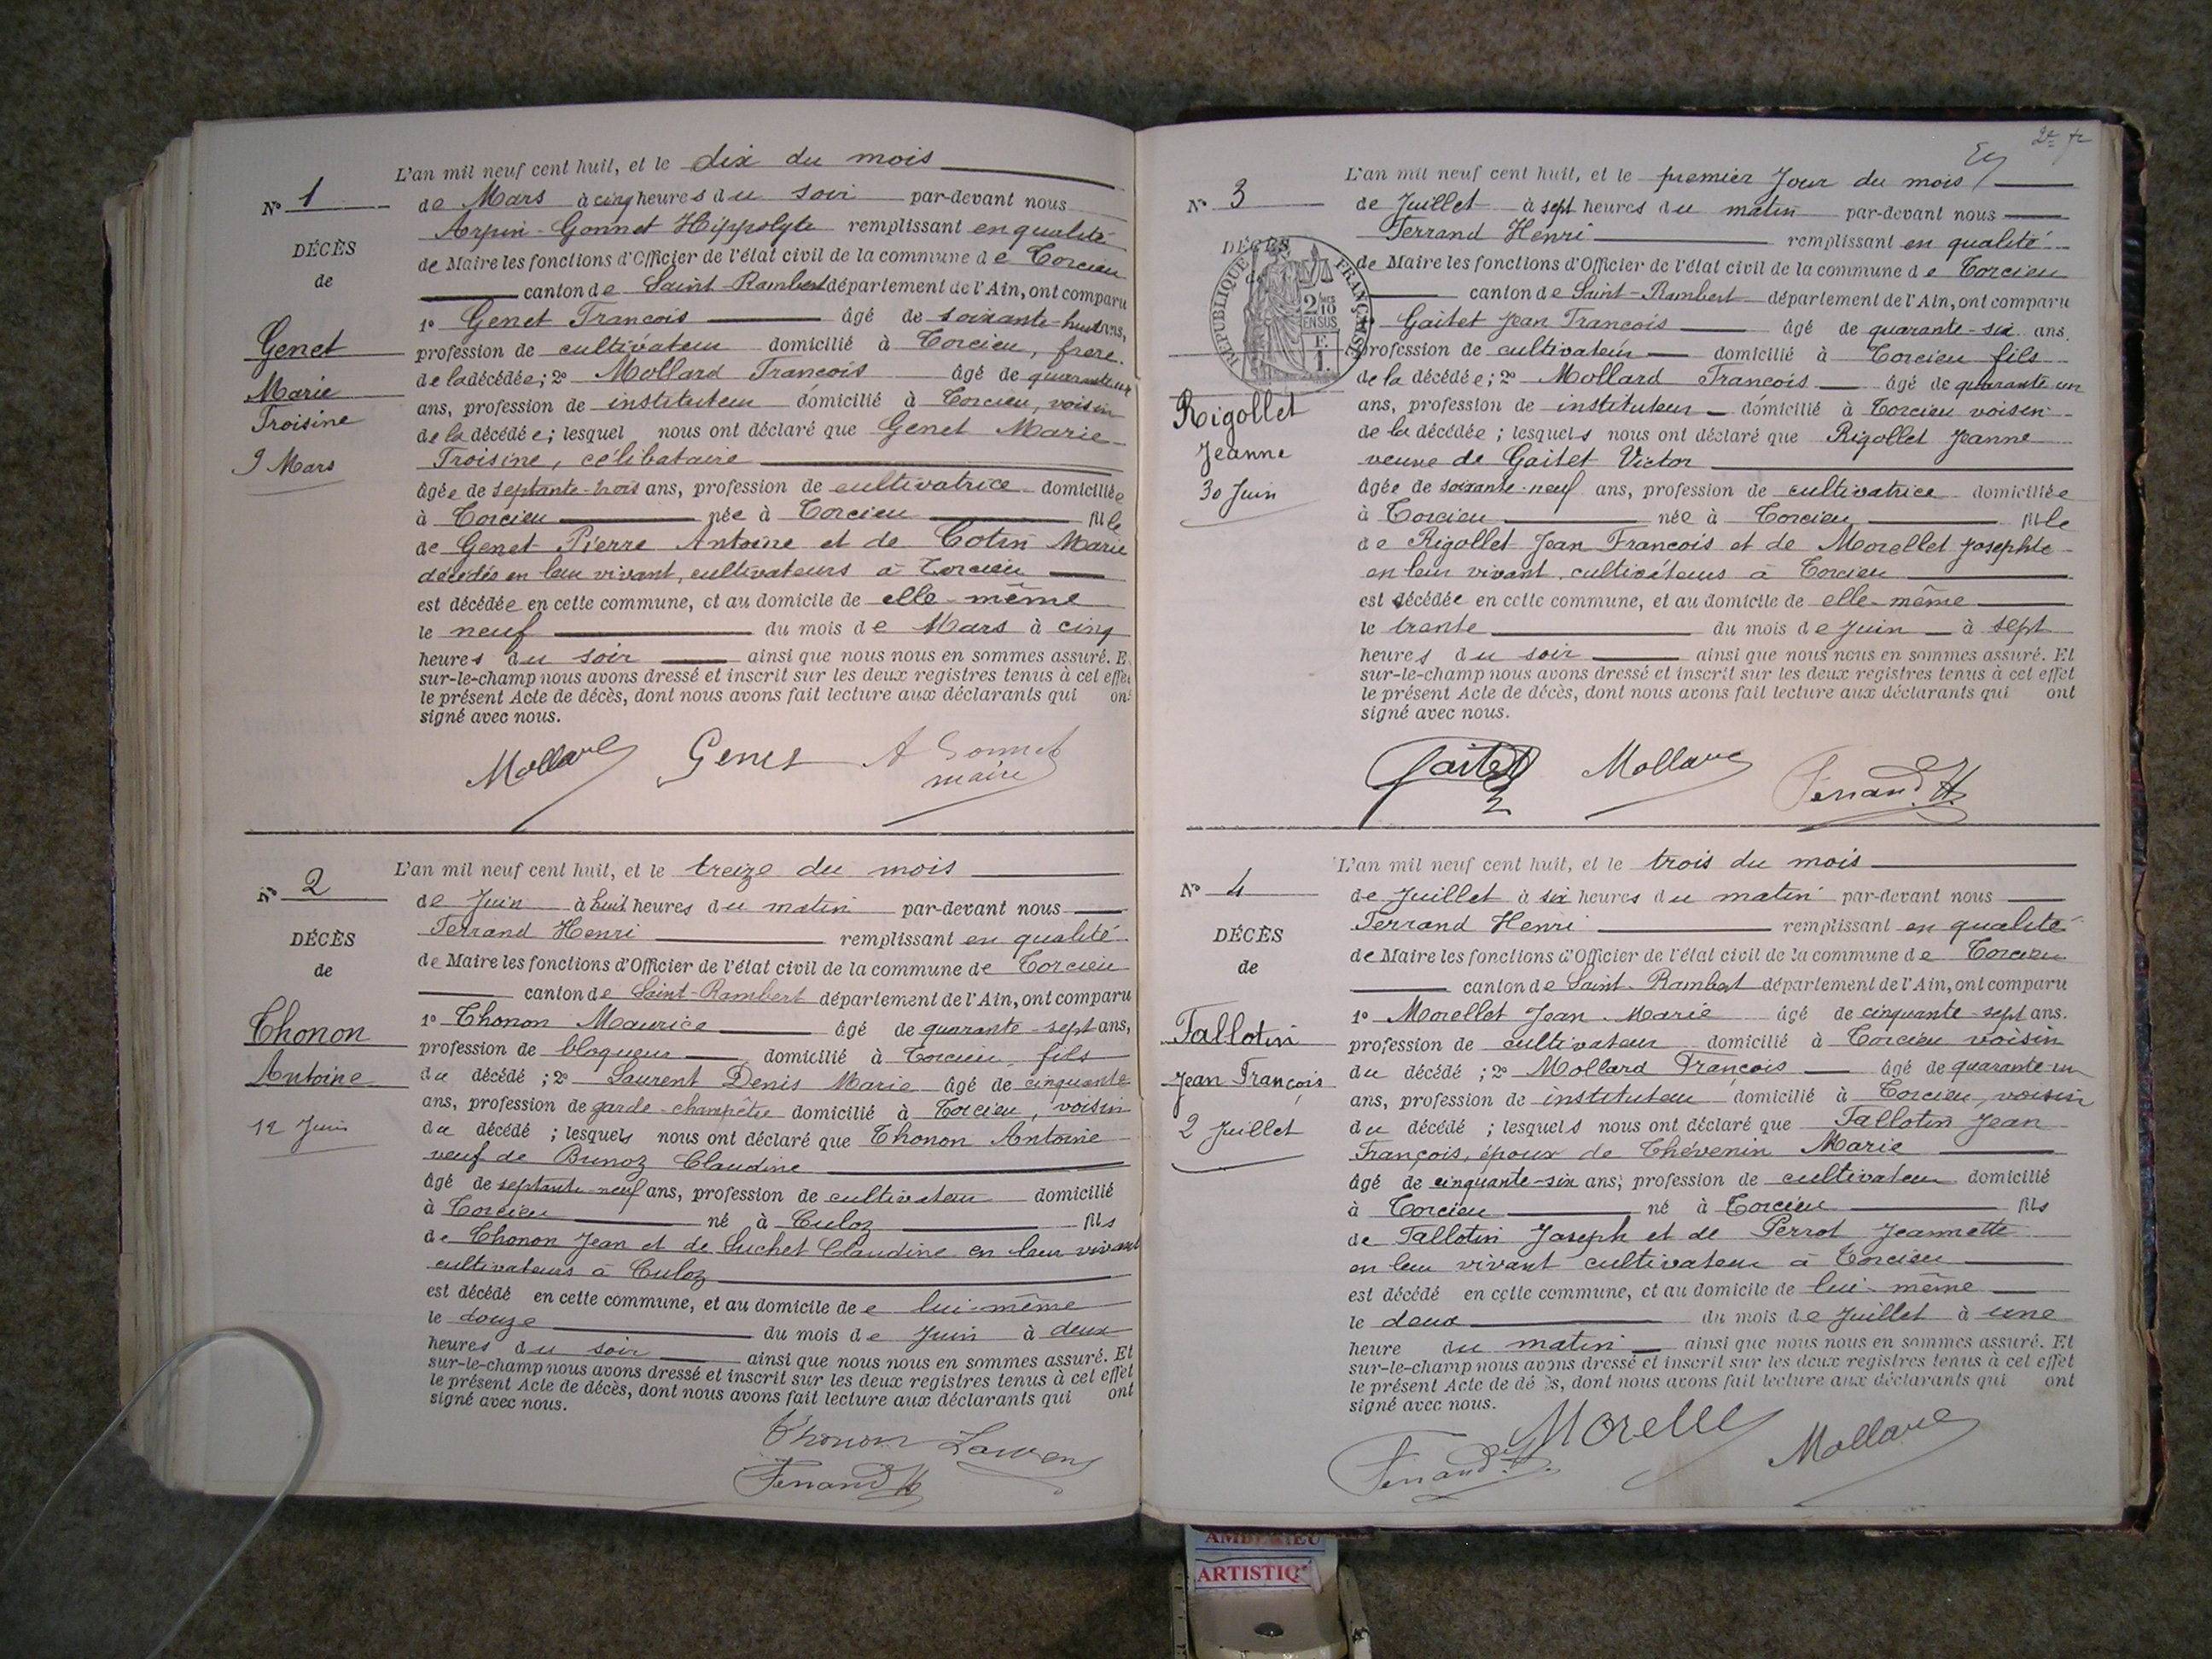 L'an mil neuf cent huit, et le dix du mois
N° 1
de Mars à cinq heures du soir par-devant nous
Arpin-Gonnet Hippolyte remplissant en qualité
DÉCÈS
de Maire les fonctions d'Officier de l'état civil de la commune de Torcieu
de
canton de Saint-Rambert département de l'Ain, ont comparu
1° Genet François âgé de soixante-huit ans,
Genet
profession de cultivateur domicilié à Torcieu, frère
de la décédée; 2° Mollard François âgé de quarante un
Marie
ans, profession de instituteur domicilié à Torcieu, voisin
Troisine
de la décédée; lesquel nous ont déclaré que Genet Marie
9 Mars
Troisine, célibataire
âgée de septante-trois ans, profession de cultivatrice domiciliée
à Torcieu née à Torcieu fille
de Genet Pierre Antoine et de Cotin Marie
décédés en leur vivant, cultivateurs à Torcieu
est décédée en cette commune, et au domicile de elle-même
le neuf du mois de Mars à cinq
heures du soir ainsi que nous nous en sommes assuré. E
sur-le-champ nous avons dressé et inscrit sur les deux registres tenus à cet effet
le présent Acte de décès, dont nous avons fait lecture aux déclarants qui ont
signé avec nous.
Mollard Genet A Gonnet
maire
L'an mil neuf cent huit, et le treize du mois
N° 2
de Juin à huit heures du matin par-devant nous
Ferrand Henri remplissant en qualité
DÉCÈS
de Maire les fonctions d'Officier de l'état civil de la commune de Torcieu
de
canton de Saint-Rambert département de l'Ain, ont comparu
1° Thonon Maurice âgé de quarante-sept ans,
Thonon
profession de bloqueur domicilié à Torcieu fils
Antoine
du décédé; 2° Laurent Denis Marie âgé de cinquante
ans, profession de garde-champêtre domicilié à Torcieu, voisin
12 Juin
du décédé; lesquels nous ont déclaré que Thonon Antoine
veuf de Brunoz Claudine
âgé de septante-neuf ans, profession de cultivateur domicilié
à Torcieu né à Culoz fils
de Thonon Jean et de Luchet Claudine en leur vivant
cultivateurs à Culoz
est décédé en cette commune, et au domicile de e lui-même
le douze du mois de Juin à deux
heures du soir ainsi que nous nous en sommes assuré. Et
sur-le-champ nous avons dressé et inscrit sur les deux registres tenus à cet effet
le présent Acte de décès, dont nous avons fait lecture aux déclarants qui ont
signé avec nous.
Thonon Laurent
Ferrand H
2e
L'an mil neuf cent huit, et le premier Jour du mois
N° 3
de Juillet à sept heures du matin par-devant nous
Ferrand Henri remplissant en qualité
DÉCÈS
de Maire les fonctions d'Officier de l'état civil de la commune de Torcieu
RÉPUBLIQUE FRANÇAISE
2/10 EN SUS
canton de Saint-Rambert département de l'Ain, ont comparu
Gaitet Jean François âgé de quarante-six ans.
profession de cultivateur domicilié à Torcieu fils
de la décédée; 2° Mollard François âgé de quarante un
Rigollet
ans, profession de instituteur domicilié à Torcieu voisin
de la décédée; lesquels nous ont déclaré que Rigollet Jeanne
Jeanne
veuve de Gaitet Victor
30 Juin
âgée de soixante-neuf ans, profession de cultivatrice domiciliée
à Torcieu née à Torcieu fille
de Rigollet Jean François et de Morellet Josephte
en leur vivant cultivateurs à Torcieu
est décédée en cette commune, et au domicile de elle-même
le trente du mois de Juin à sept
heures du soir ainsi que nous nous en sommes assuré. Et
sur-le-champ nous avons dressé et inscrit sur les deux registres tenus à cet effet
le présent Acte de décès, dont nous avons fait lecture aux déclarants qui ont
signé avec nous.
Gaitet Mollard Ferrand H
L'an mil neuf cent huit, et le trois du mois
N° 4
de Juillet à six heures du matin par-devant nous
Ferrand Henri remplissant en qualité
DÉCÈS
de Maire les fonctions d'Officier de l'état civil de la commune de Torcieu
de
canton de Saint-Rambert département de l'Ain, ont comparu
1° Morellet Jean Marie âgé de cinquante-sept ans.
Fallotin
profession de cultivateur domicilié à Torcieu voisin
Jean François
du décédé; 2° Mollard François âgé de quarante-un
ans, profession de instituteur domicilié à Torcieu, voisin
2 Juillet
du décédé; lesquels nous ont déclaré que Fallotin Jean
François, époux de Thévenin Marie
âgé de cinquante-six ans, profession de cultivateur domicilié
à Torcieu né à Torcieu fils
de Fallotin Joseph et de Perrot Jeannette
en leur vivant cultivateur à Torcieu
est décédé en cette commune, et au domicile de lui-même
le deux du mois de Juillet à une
heure du matin ainsi que nous nous en sommes assuré. Et
sur-le-champ nous avons dressé et inscrit sur les deux registres tenus à cet effet
le présent Acte de décès, dont nous avons fait lecture aux déclarants qui ont
signé avec nous.
Ferrand H. Morellet Mollard
AMBERIEU
ARTISTIQ